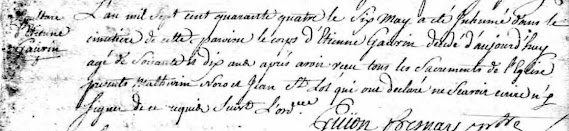 L'an mil sept cent quarante quatre le six may a été Inhumé dans le
cimetiere de cette paroisse le corps d'Etienne Gaurin decedé d'aujourd'huy
agé de Soixante et dix ans après avoir reçu tous les Sacrements de l'Eglise
presents Mathurin et Jean qui ont declaré ne Scavoir ecrire n'y
Signer de ce requis Suivt l'ordce
d'Etienne
Gaurin